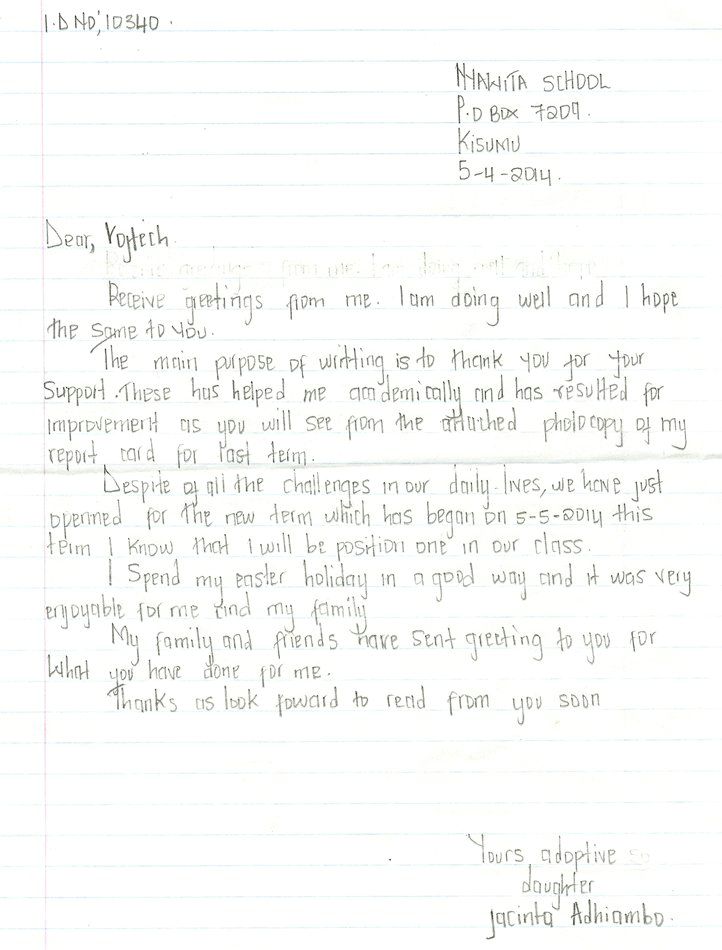 I.D NO; 10340.
NYAWITA SCHOOL
P.O BOX 7209.
KISUMU
5-4-2014.
Dear, Vojtech
Receive greetings from me. I am doing well and hope
Receive greetings from me. I am doing well and I hope
the same to you.
The main purpose of writting is to thank you for your
support. These has helped me academically and has resulted for
improvement as you will see from the attached photocopy of my
report card for last term.
Despite of all the challenges in our daily lives, we have just
openned for the new term which has began on 5-5-2014 this
term I know that I will be position one in our class.
I Spend my easter holiday in a good way and it was very
enjoyable for me and my family
My family and friends have sent greeting to you for
what you have done for me.
Thanks as look foward to read from you soon
Yours adoptive so
daughter
Jacinta Adhiambo.